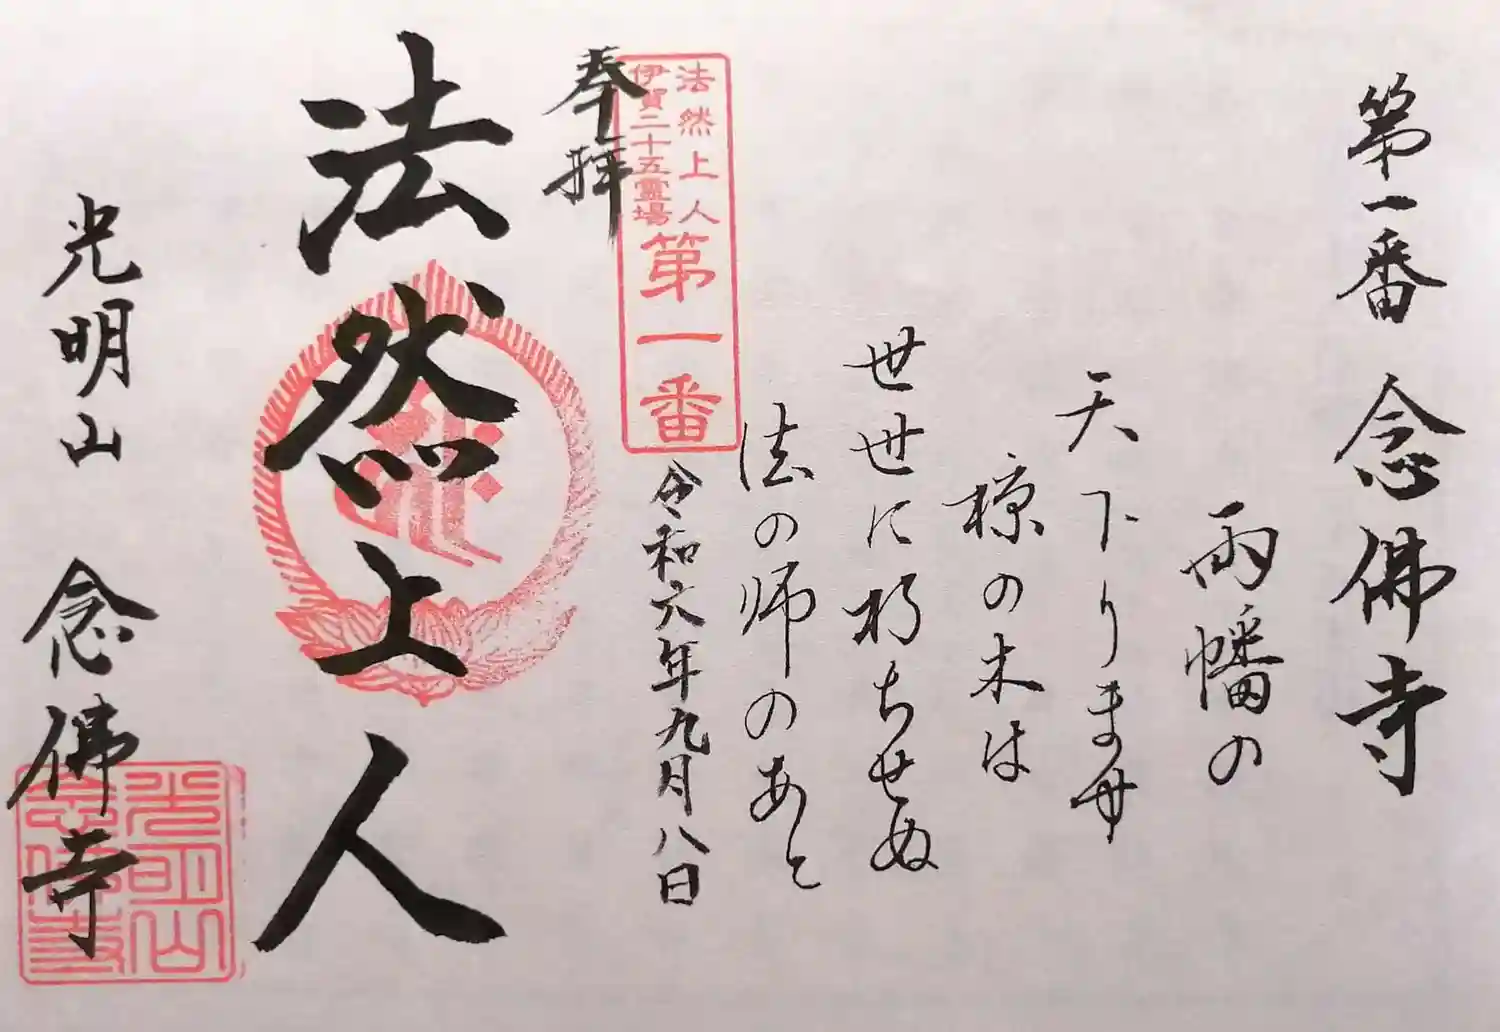 第一番 念佛寺
両幡の
天下りませ
椋の木は
世世に朽ちせぬ
法の師のあと
法然上人
伊賀二十五霊場
第一番
奉拝
令和六年九月八日
法然上人
光明山 念佛寺
光明山
念佛寺